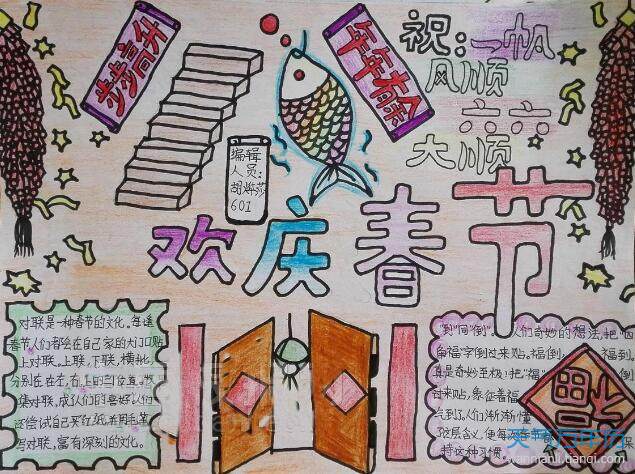 步步高升
年年有余
祝:一帆
风顺
六六
大顺
编辑
人员:
胡
601
欢庆春节
对联是一种春节的文化。每逢
春节人们都会在自己家的大门口贴
上对联。上联,下联,横批,
分别在左,右,上的
集对联,成
还尝试自己买红纸,并用毛笔
写对联,富有深刻的文化。
"到"同"倒"。人们奇妙的想法,把"
福字倒过来贴。福倒,福到。
真是奇妙至极!把"福"倒
过来贴,象征着福
气到了,人们渐渐懂
含义,便每
持这种习惯。
福
wannianli.tianqi.com